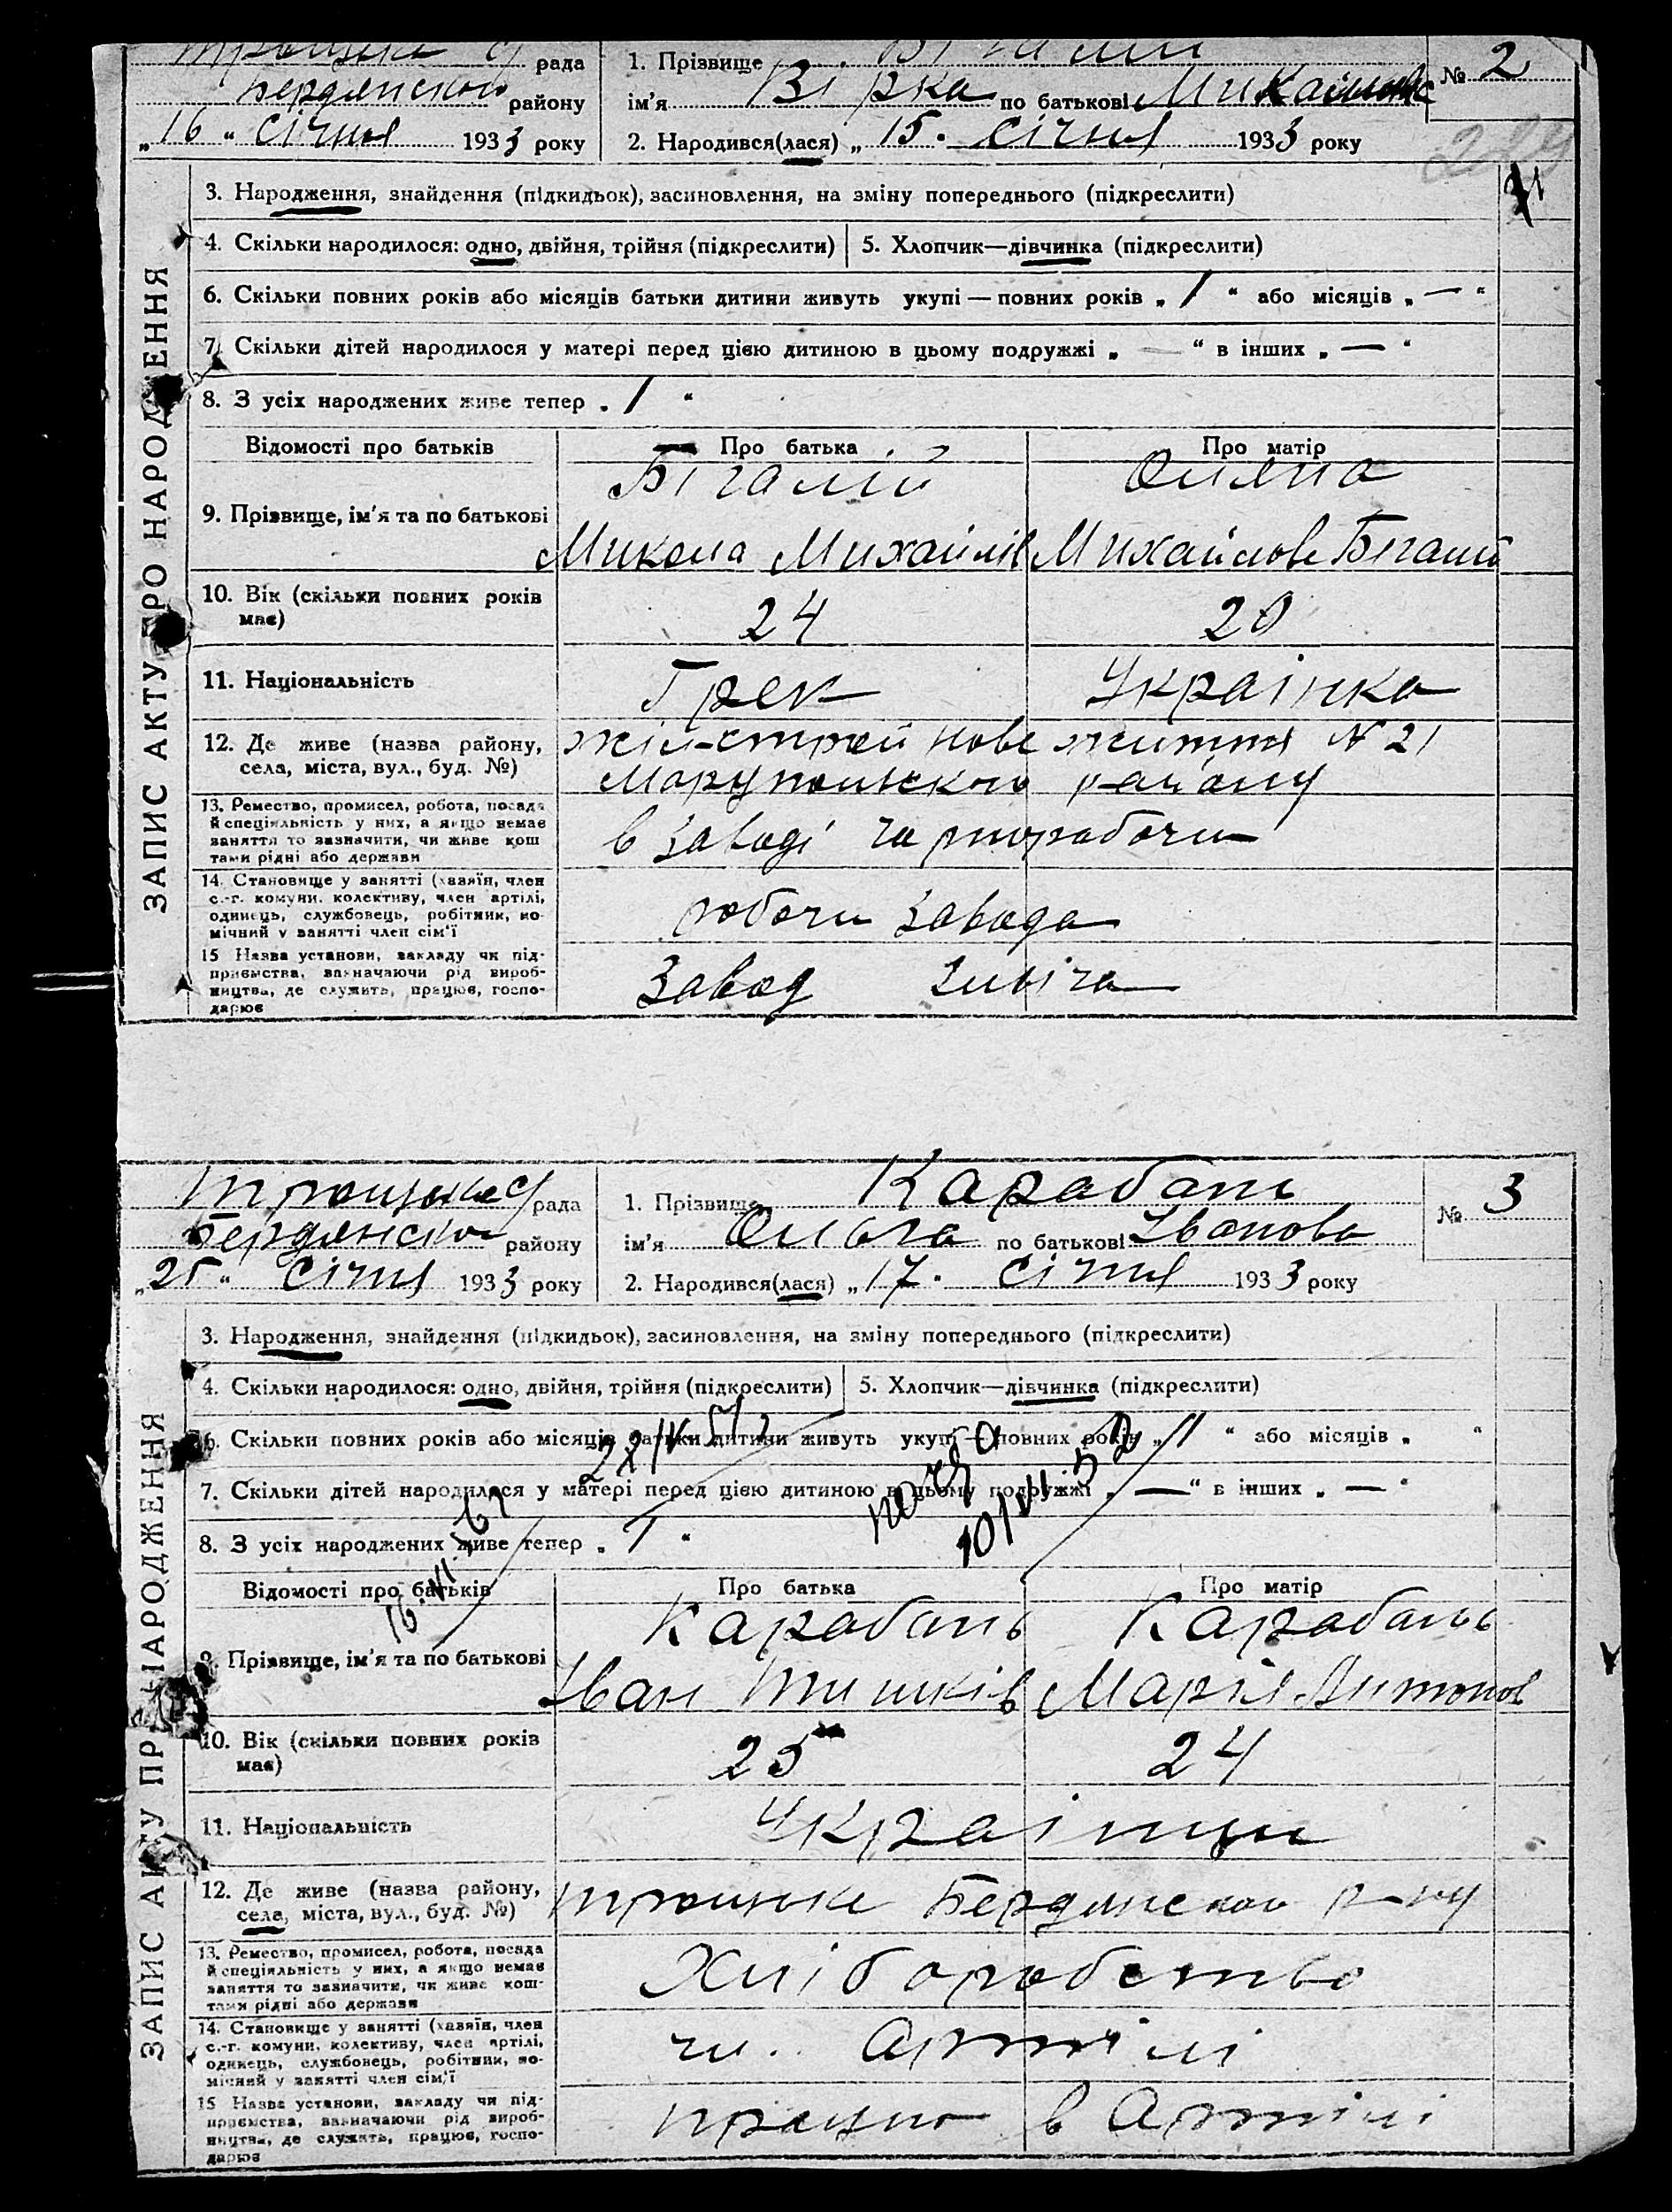 рада
Бердянського району
„16“ січня 1933 року
1. Прізвище
ім'я Вірка по батькові
№ 2
2. Народився(лася) „15. січня 1933 року
3. Народження, знайдення (підкидьок), засиновлення, на зміну попереднього (підкреслити)
4. Скільки народилося: одно, двійня, трійня (підкреслити) 5. Хлопчик—дівчинка (підкреслити)
6. Скільки повних років або місяців батьки дитини живуть укупі — повних років „ 1 “ або місяців „ — “
7. Скільки дітей народилося у матері перед цією дитиною в цьому подружжі „ — “ в інших „ — “
8. З усіх народжених живе тепер „ 1 “
Відомості про батьків Про батька Про матір
9. Прізвище, ім'я та по батькові
Бігалій
Микола Михайлів
Михайлове Бігалій
10. Вік (скільки повних років має)
24 20
11. Національність
Грек Українка
12. Де живе (назва району,
села, міста, вул., буд. №)
нове життя № 21
району
13. Ремество, промисел, робота, посада
й спеціяльність у них, а якщо немає
заняття то зазначити, чи живе кош
тами рідні або держави
в заводі
14. Становище у занятті (хазяїн, член
с.-г. комуни, колективу, член артілі,
одинець, службовець, робітник, по-
мічний у занятті член сім'ї
робочи завода
15 Назва установи, закладу чи під-
приємства, зазначаючи рід вироб-
ництва, де служить, працює, госпо-
дарює
Завод Ілліча
ЗАПИС АКТУ ПРО НАРОДЖЕННЯ
рада
району
„25“ січня 1933 року
1. Прізвище Карабань
ім'я Ольга по батькові Іванова
№ 3
2. Народився(лася) „17. січня 1933 року
3. Народження, знайдення (підкидьок), засиновлення, на зміну попереднього (підкреслити)
4. Скільки народилося: одно, двійня, трійня (підкреслити) 5. Хлопчик—дівчинка (підкреслити)
6. Скільки повних років або місяців батьки дитини живуть укупі — повних років „ 1 “ або місяців „ “
7. Скільки дітей народилося у матері перед цією дитиною в цьому подружжі „ — “ в інших „ — “
8. З усіх народжених живе тепер „ 1 “
Відомості про батьків Про батька Про матір
9. Прізвище, ім'я та по батькові
Карабань Карабань
Іван Марія Антонов
10. Вік (скільки повних років має)
25 24
11. Національність
Українци
12. Де живе (назва району,
села, міста, вул., буд. №)
Бердянського р-ну
13. Ремество, промисел, робота, посада
й спеціяльність у них, а якщо немає
заняття то зазначити, чи живе кош-
тами рідні або держави
Хліборобство
14. Становище у занятті (хазяїн, член
с.-г. комуни, колективу, член артілі,
одинець, службовець, робітник, по-
мічний у занятті член сім'ї
чл. Артілі
15 Назва установи, закладу чи під-
приємства, зазначаючи рід вироб-
ництва, де служить, працює, госпо-
дарює
в Артілі
ЗАПИС АКТУ ПРО НАРОДЖЕННЯ